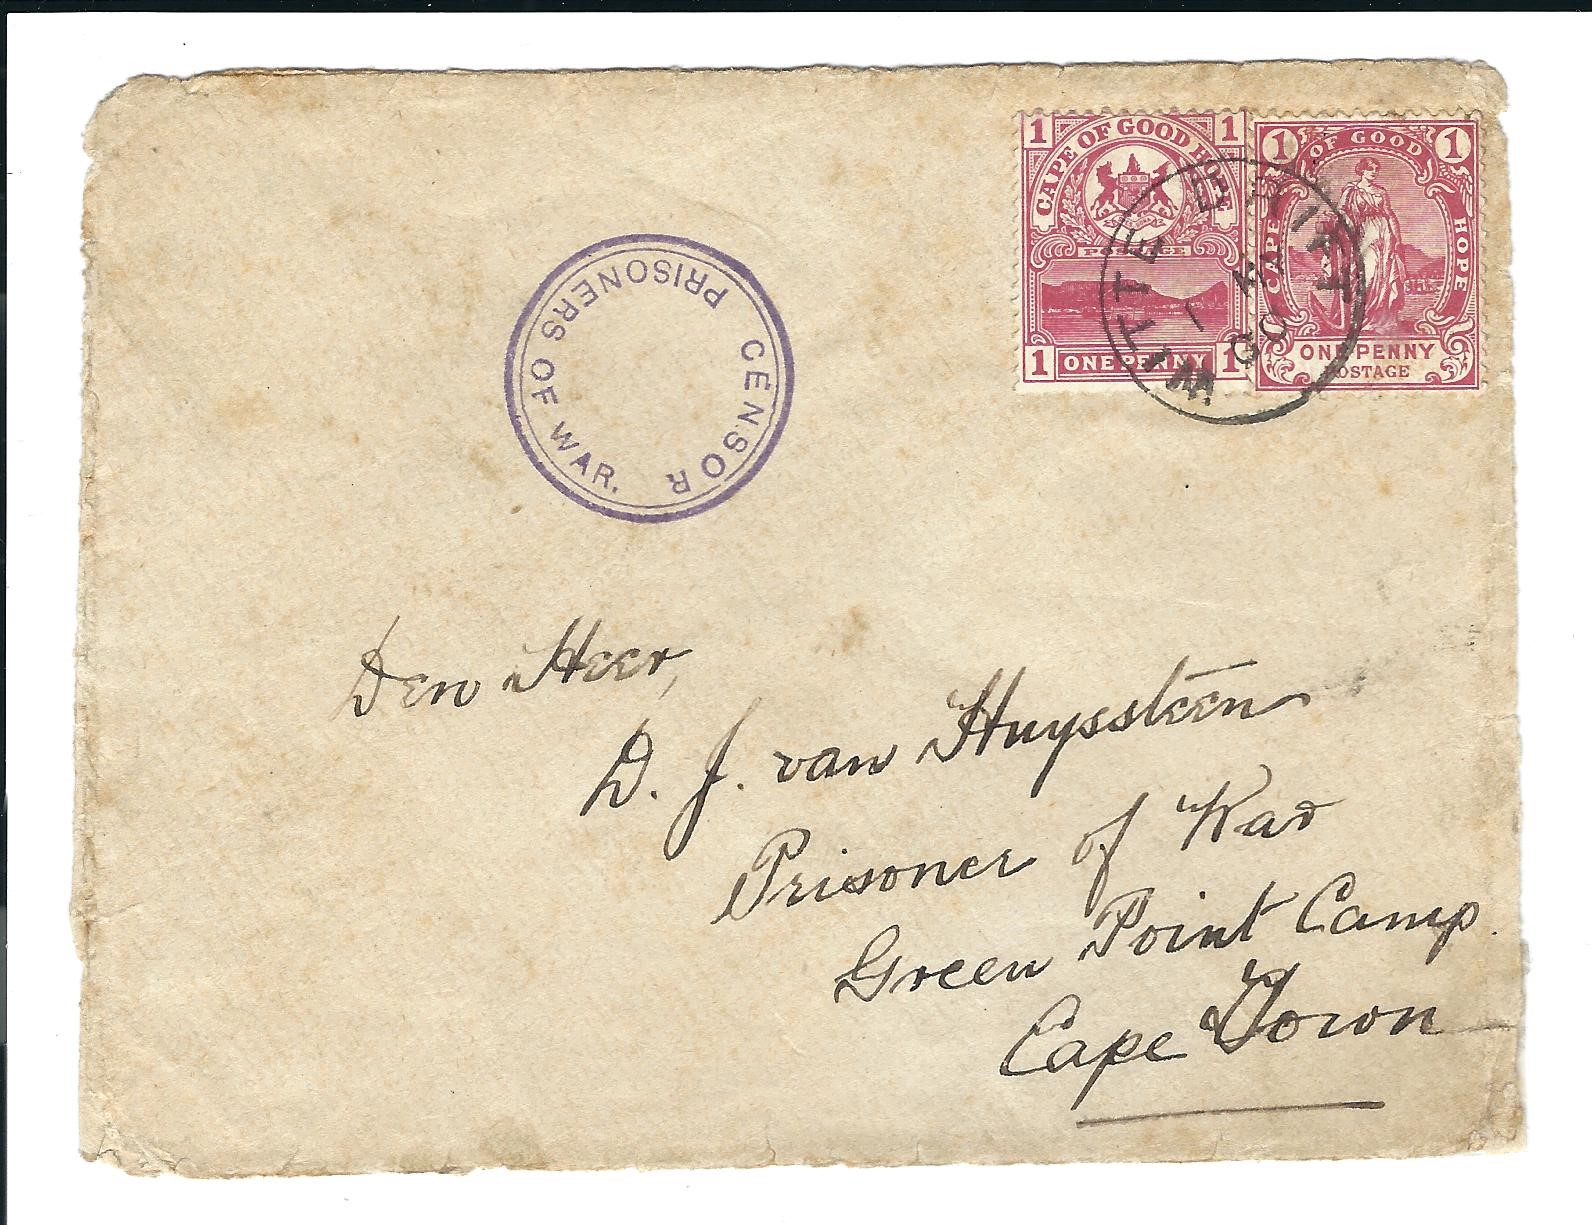 1 CAPE OF GOOD H 1
POSTAGE
1 ONE PENNY 1
1 CAPE OF GOOD HOPE 1
ONE PENNY
POSTAGE
WITTE DRIFT
00
CENSOR
PRISONERS OF WAR.
Den Heer,
D. J. van Huyssteen
Prisoner of War
Green Point Camp.
Cape Town